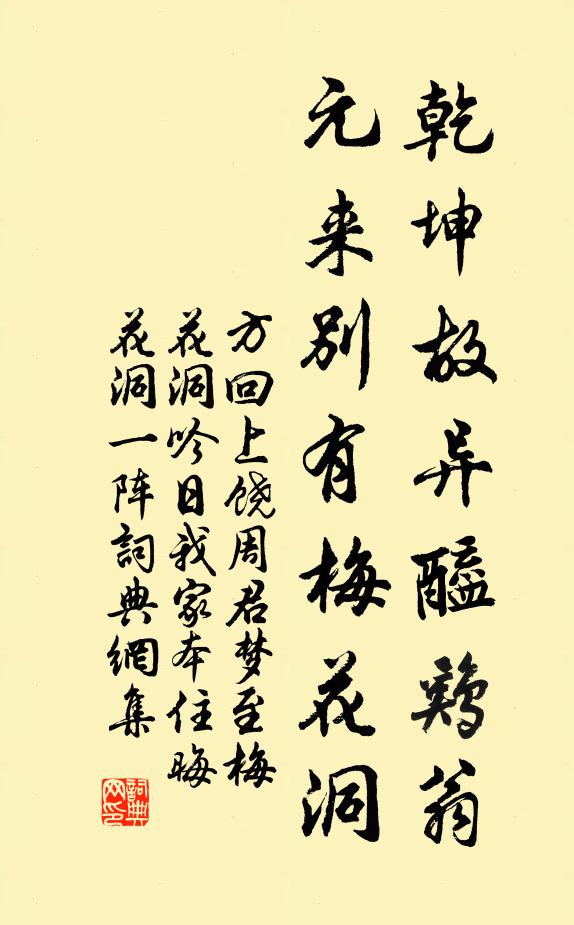 乾坤故异醯鷄翁
元来别有梅花洞
方回上饶周君梦至梅
花洞吟日我家本住晦
花洞一阵詞典網集
詞典
网印